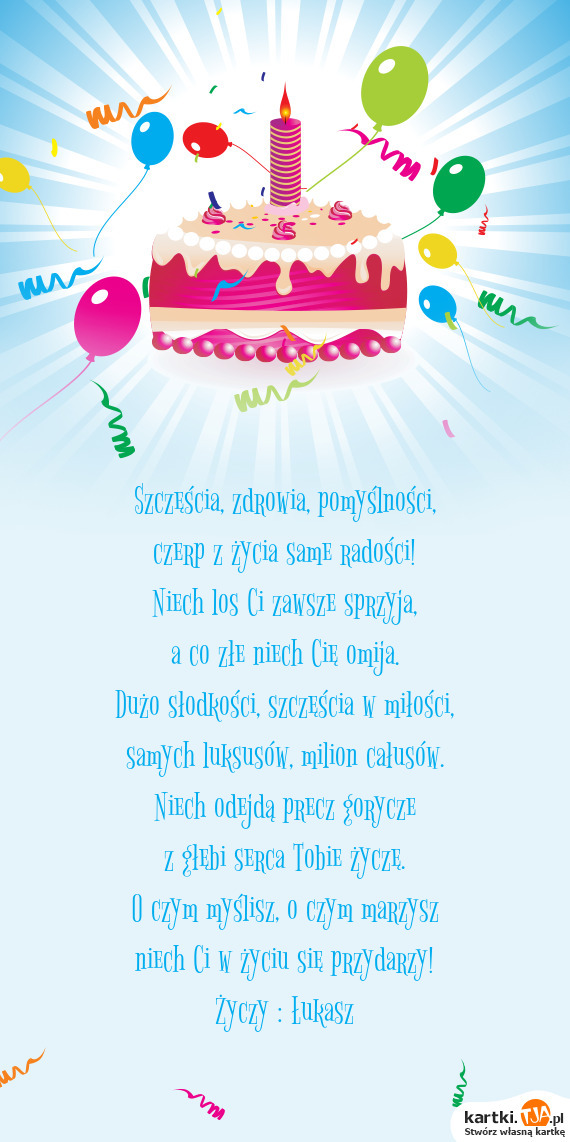 Szczęścia, zdrowia, pomyślności,
czerp z życia same radości!
Niech los Ci zawsze sprzyja,
a co złe niech Cię omija.
Dużo słodkości, szczęścia w miłości,
samych luksusów, milion całusów.
Niech odejdą precz gorycze
z głębi serca Tobie życzę.
O czym myślisz, o czym marzysz
niech Ci w życiu się przydarzy!
Życzy : Łukasz
kartki.TJA.pl
Stwórz własną kartkę